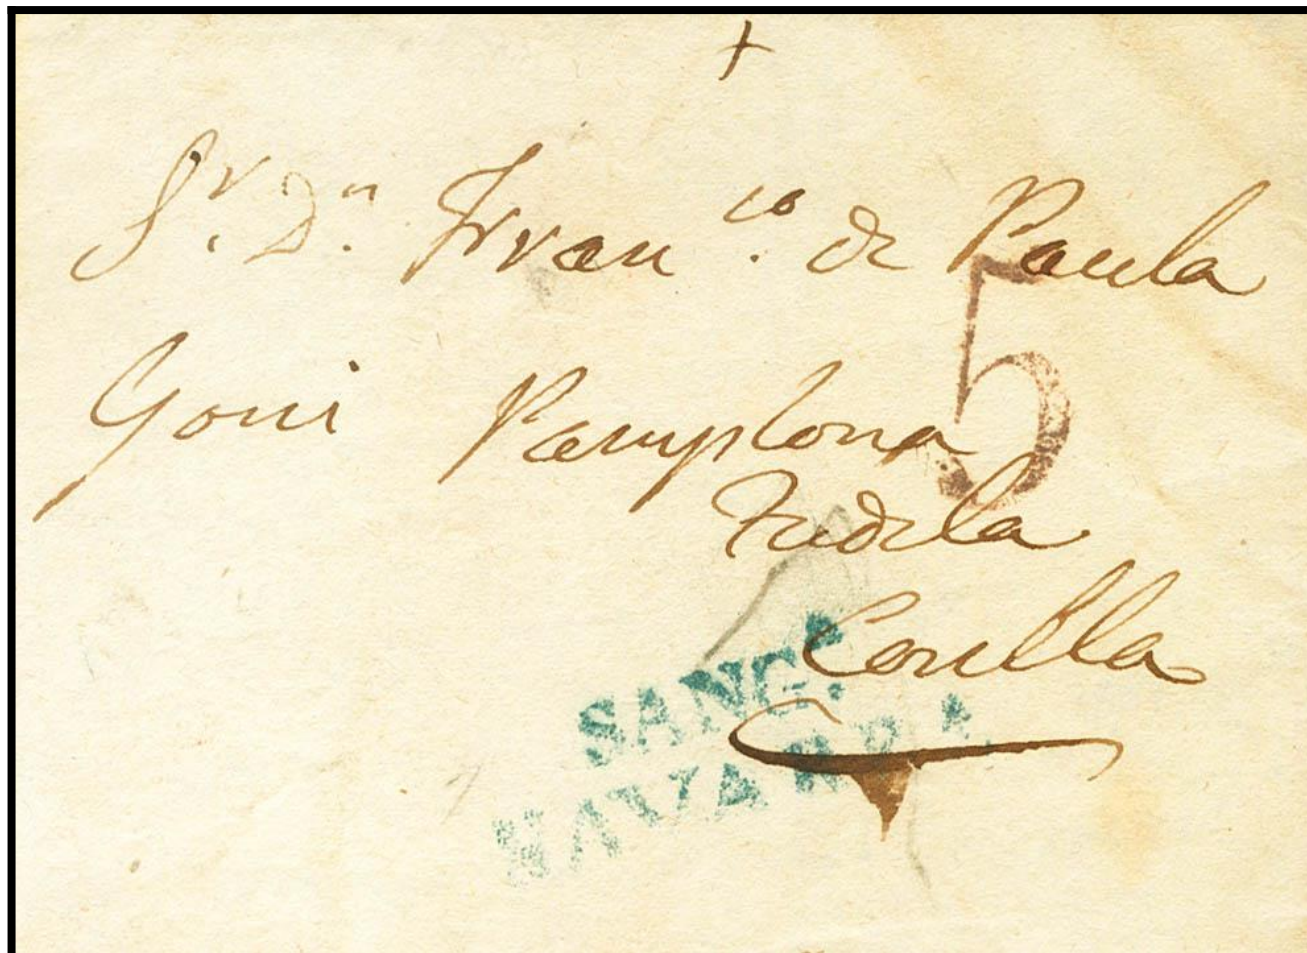 +
Sr. Dn. Franco. de Paula
Goni Pamplona
5
Tudela
Corella
SANG.A
NAVARRA